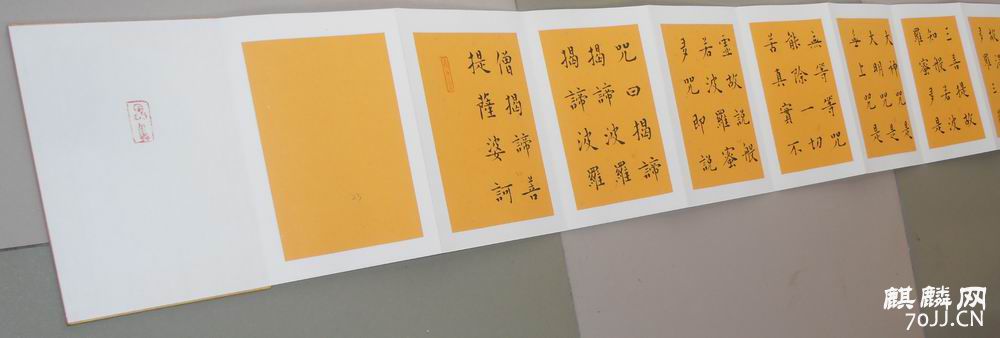 三菩提故
知般若波
羅蜜多是
大神咒是
大明咒是
無上咒是
無等等咒
能除一切
苦真實不
虛故說般
若波羅蜜
多咒即說
咒曰揭諦
揭諦波羅
揭諦波羅
僧揭諦菩
提薩婆訶
麒麟网
70JJ.CN